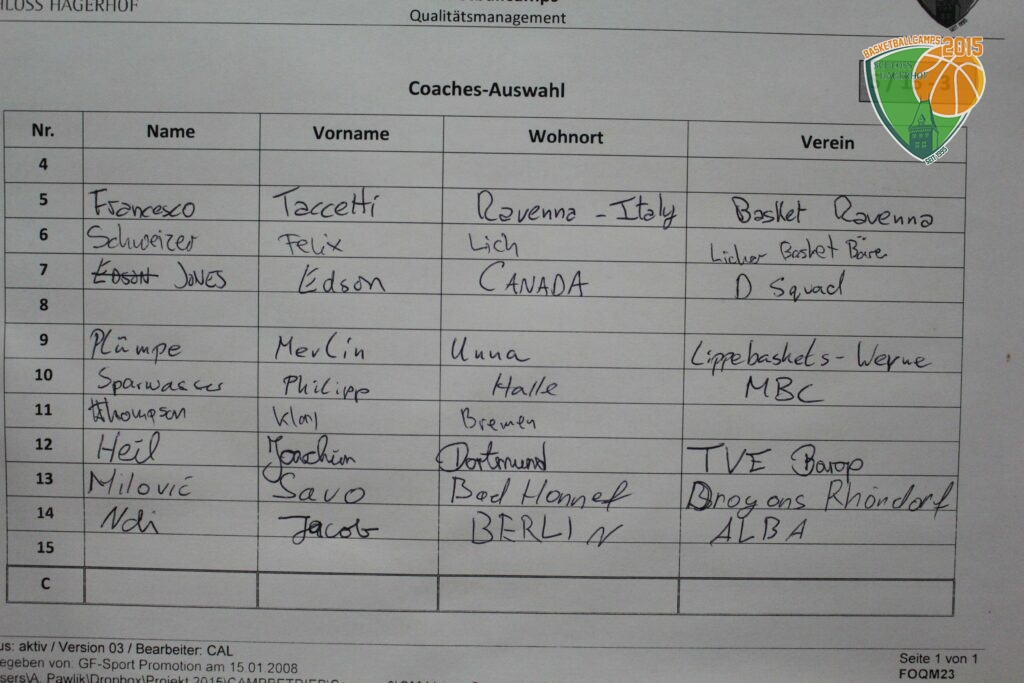 HLOSS HAGERHOF
Qualitätsmanagement
BASKETBALLCAMPS 2015
SCHLOSS HAGERHOF
SEIT 1995
Coaches-Auswahl
Nr. Name Vorname Wohnort Verein
4
5 Francesco Taccetti Ravenna - Italy Basket Ravenna
6 Schweizer Felix Lich Licher Basket Bären
7 Edson JONES Edson CANADA D Squad
8
9 Plümpe Merlin Unna Lippebaskets - Werne
10 Sparwasser Philipp Halle MBC
11 Thompson Bremen
12 Heil Joachim Dortmund TVE Barop
13 Milović Savo Bad Honnef Dragons Rhöndorf
14 Ndi Jacob BERLIN ALBA
15
C
us: aktiv / Version 03 / Bearbeiter: CAL
egeben von: GF-Sport Promotion am 15.01.2008
sers\A. Pawlik\Dropbox\Projekt 2015\CAMPBETRIEB\
Seite 1 von 1
FOQM23